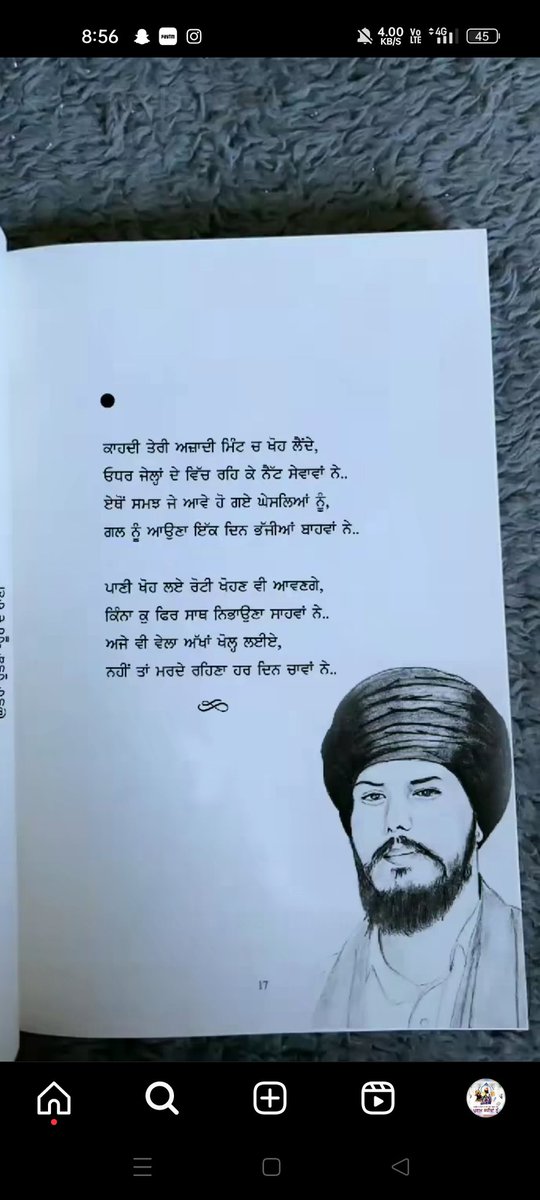 8:56
4.00
KB/S
Vo
LTE
4G
45
ਕਾਹਦੀ ਤੇਰੀ ਅਜ਼ਾਦੀ ਮਿੰਟ ਚ ਖੋਹ ਲੈਂਦੇ,
ਓਧਰ ਜੇਲ੍ਹਾਂ ਦੇ ਵਿੱਚ ਰਹਿ ਕੇ ਨੈੱਟ ਸੇਵਾਵਾਂ ਨੇ..
ਏਥੋਂ ਸਮਝ ਜੇ ਆਵੇ ਹੋ ਗਏ ਘੇਸਲਿਆਂ ਨੂੰ,
ਗਲ ਨੂੰ ਆਉਣਾ ਇੱਕ ਦਿਨ ਭੱਜੀਆਂ ਬਾਹਵਾਂ ਨੇ..
ਪਾਣੀ ਖੋਹ ਲਏ ਰੋਟੀ ਖੋਹਣ ਵੀ ਆਵਣਗੇ,
ਕਿੰਨਾ ਕੁ ਫਿਰ ਸਾਥ ਨਿਭਾਉਣਾ ਸਾਹਵਾਂ ਨੇ..
ਅਜੇ ਵੀ ਵੇਲਾ ਅੱਖਾਂ ਖੋਲ੍ਹ ਲਈਏ,
ਨਹੀਂ ਤਾਂ ਮਰਦੇ ਰਹਿਣਾ ਹਰ ਦਿਨ ਚਾਵਾਂ ਨੇ..
17